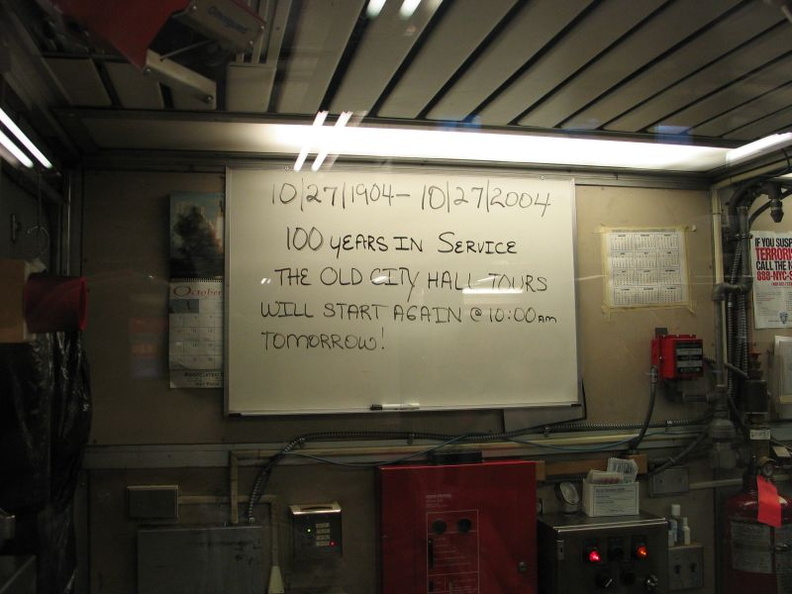 10/27/1904 - 10/27/2004
100 YEARS IN SERVICE
THE OLD CITY HALL TOURS
WILL START AGAIN @ 10:00AM
TOMORROW!
October
IF YOU SUSP
TERRORIS
CALL THE N
888-NYC-S